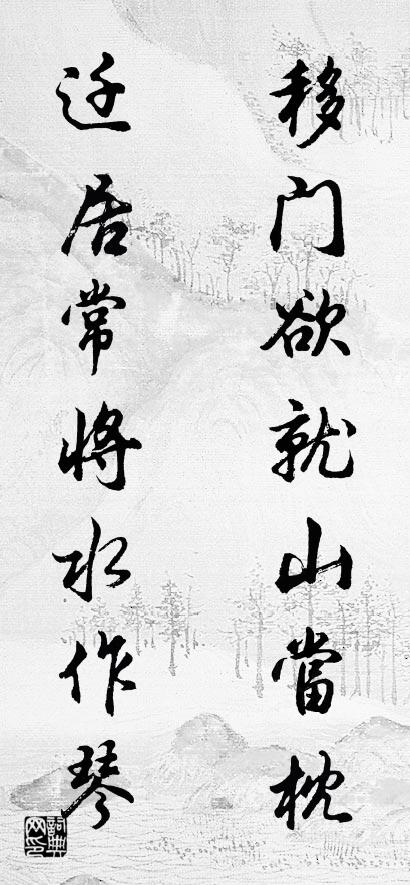 移门欲就山當枕
迁居常将水作琴
詞典
网印